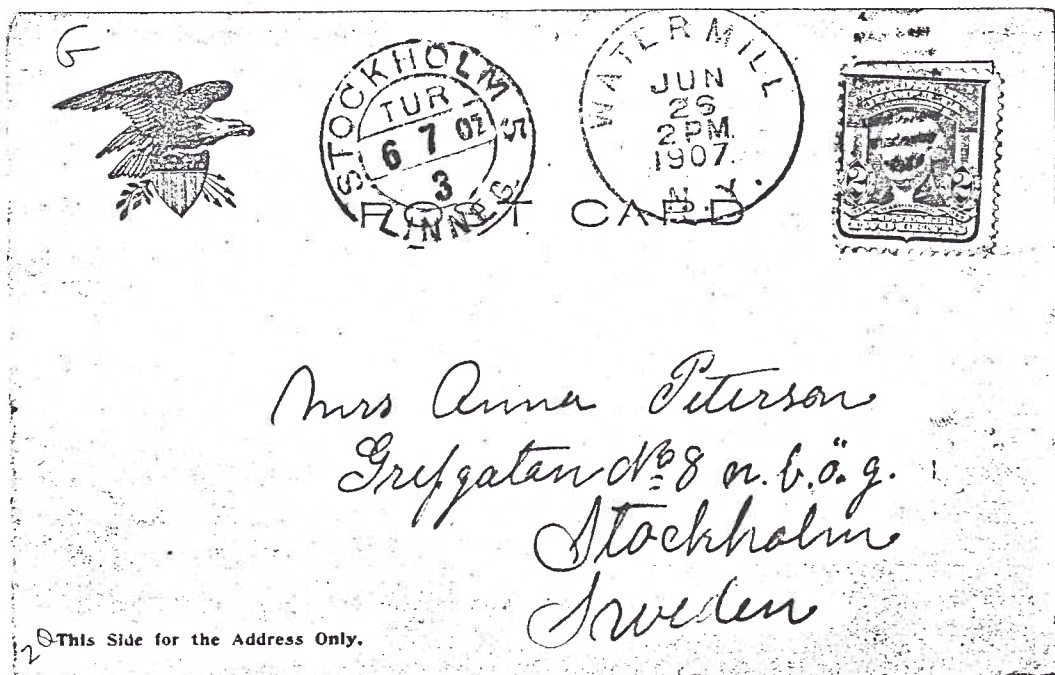 G
STOCKHOLM 5
TUR
6 7 07
3
WATER MILL
JUN
26
2 PM.
1907.
N.Y.
POST CARD
2 2
Mrs Anna Peterson
Grefgatan No 8 n. b. ö. g.
Stockholm
Sweden
This Side for the Address Only.
2